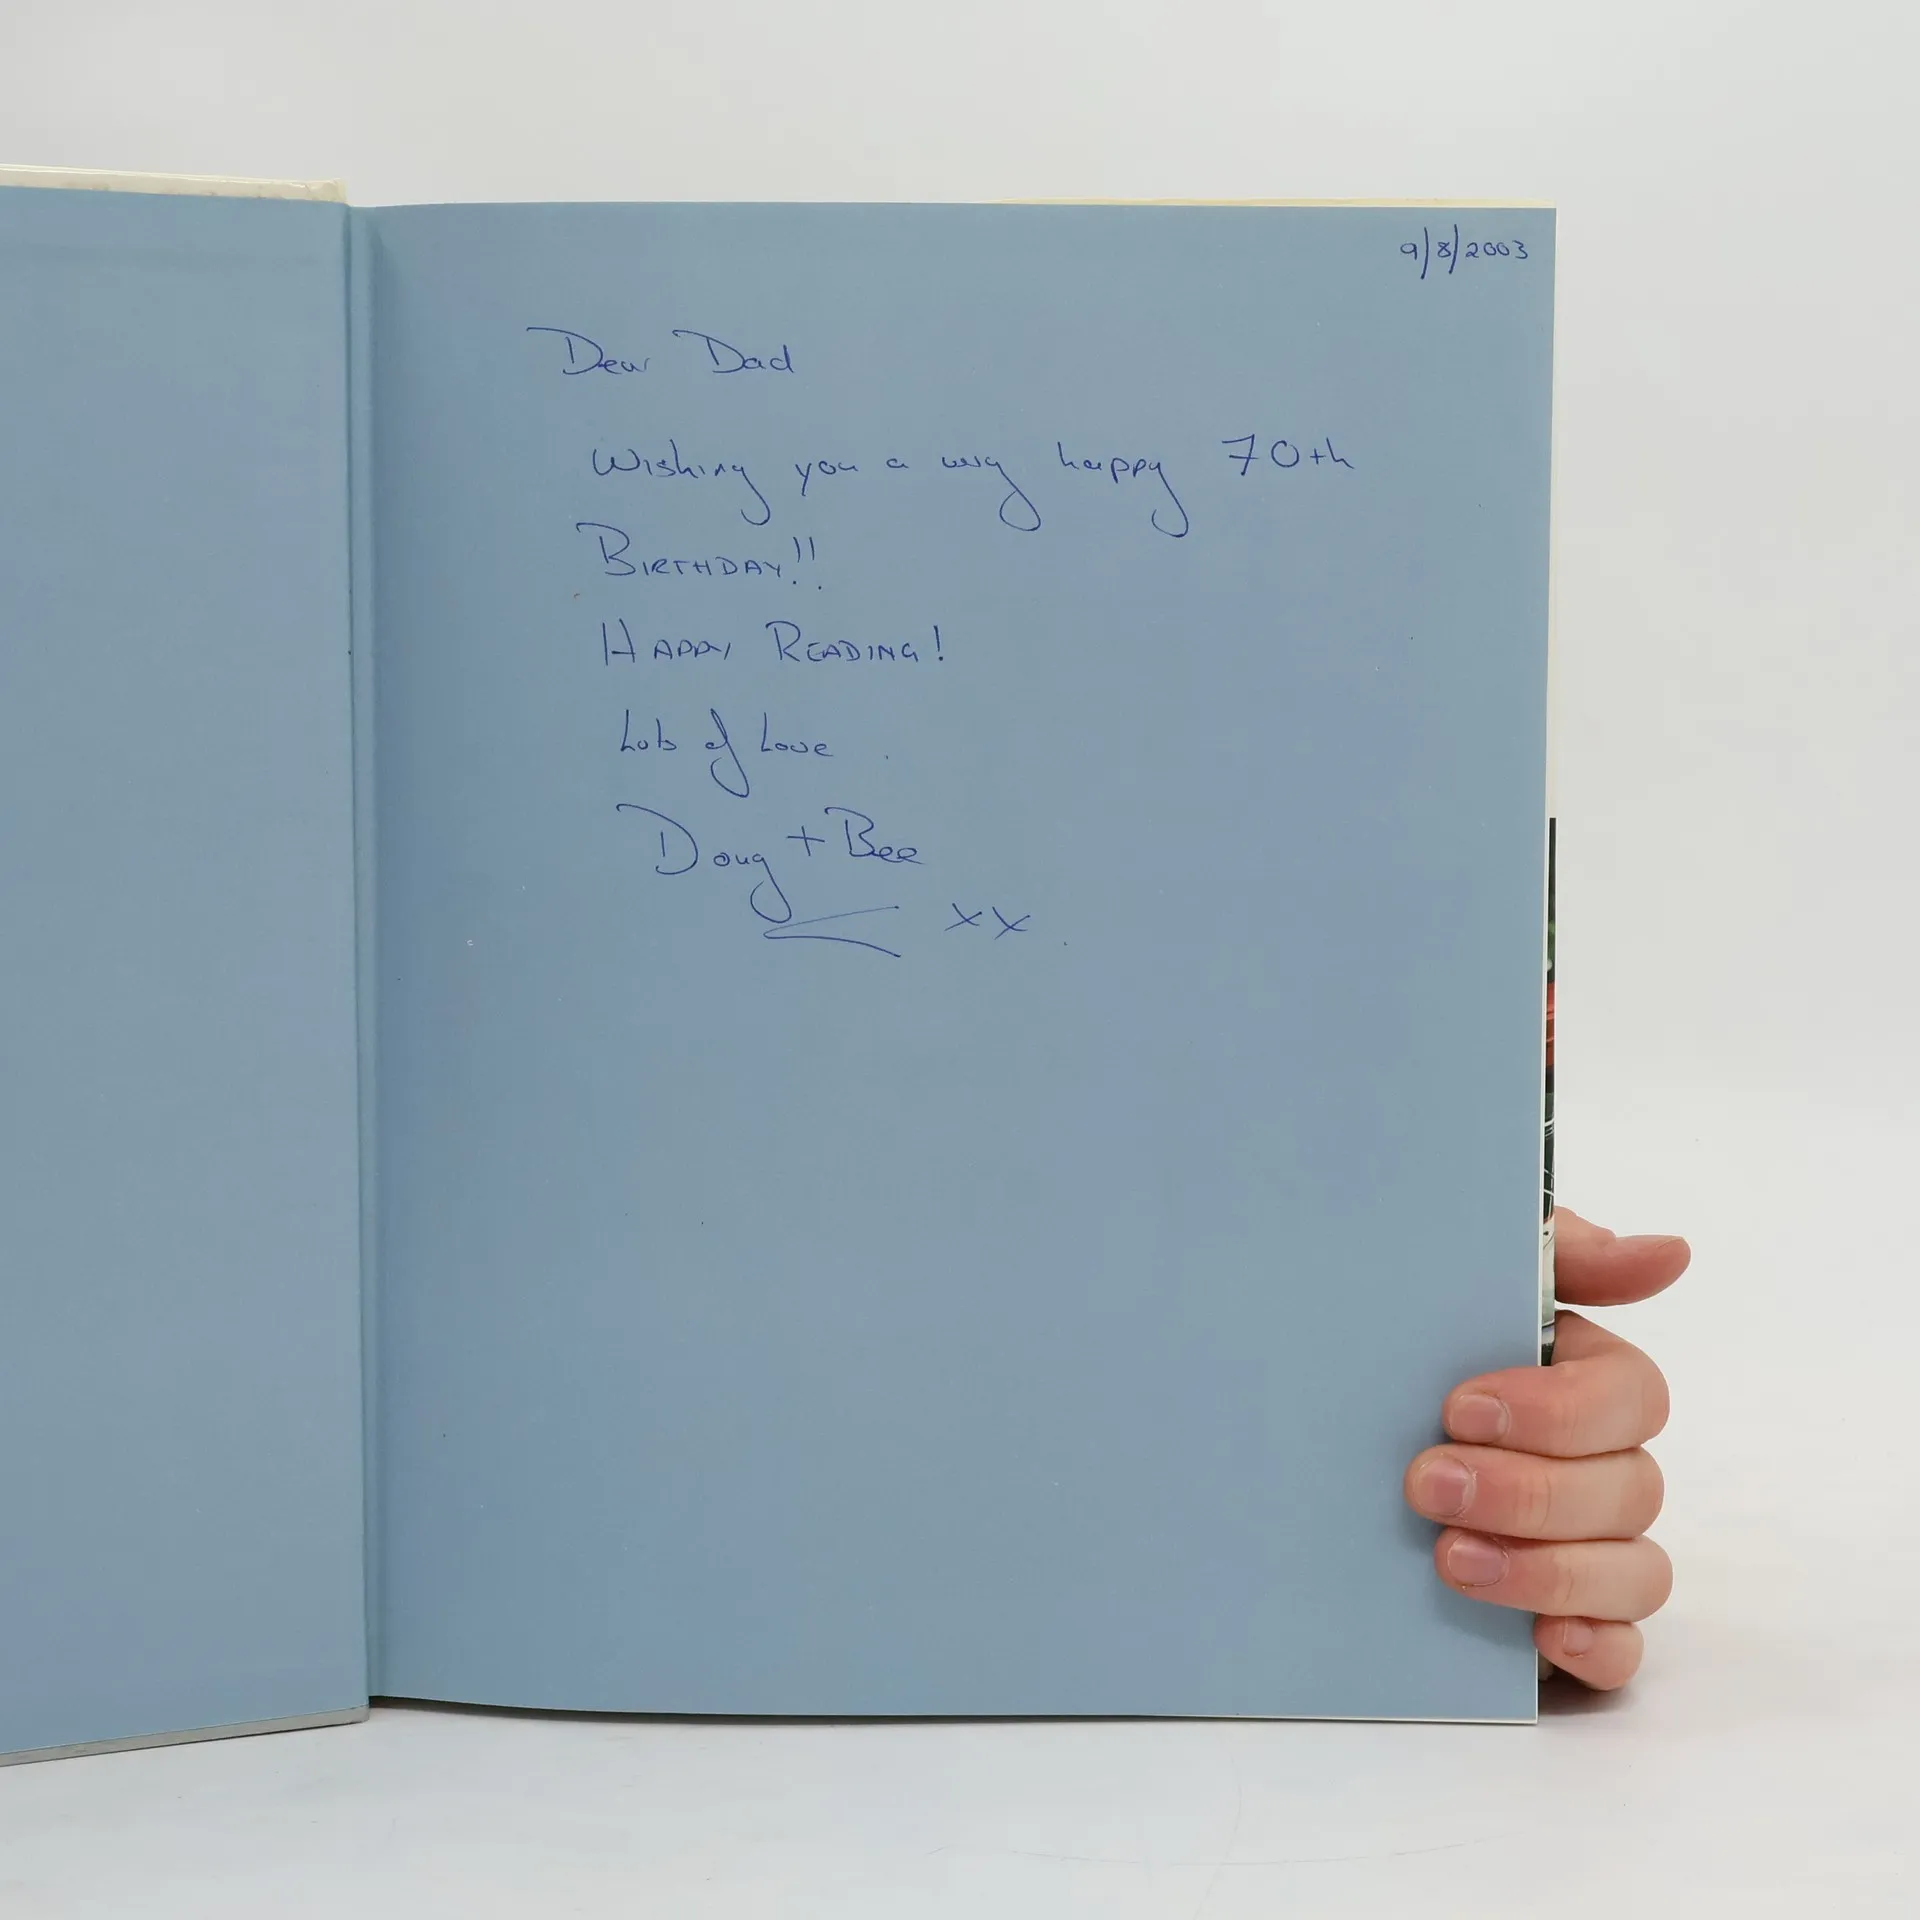 9/8/2003
Dear Dad
Wishing you a very happy 70th
BIRTHDAY!!
HAPPY READING!
Lots of Love
Doug + Bee
xx